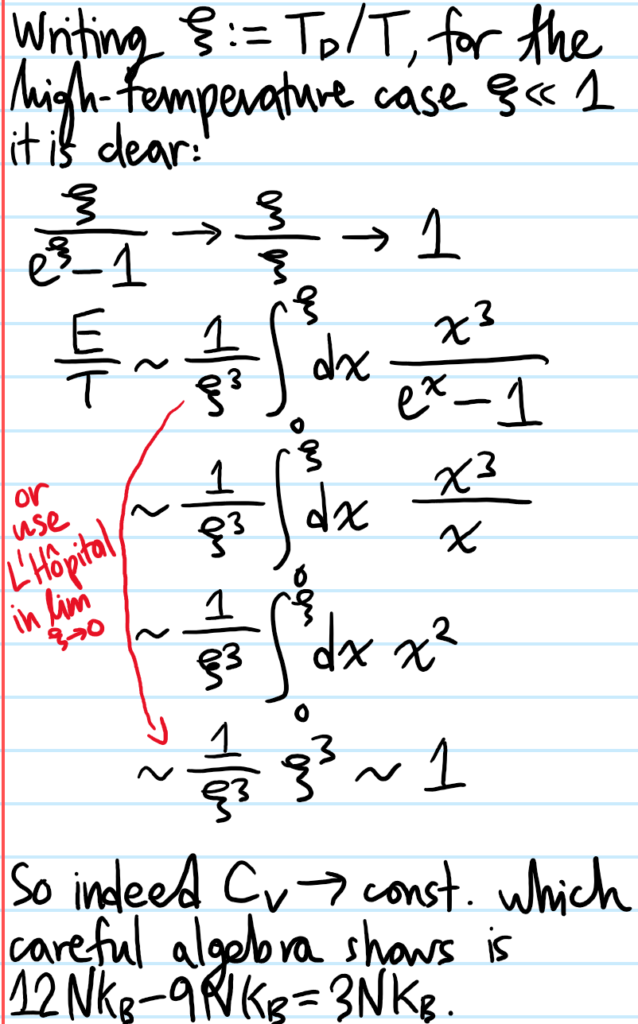 Writing ξ := T_D/T, for the
high-temperature case ξ ≪ 1
it is clear:
ξ/(e^ξ − 1) → ξ/ξ → 1
E/T ~ 1/ξ³ ∫₀^ξ dx x³/(e^x − 1)
~ 1/ξ³ ∫₀^ξ dx x³/x
or
use
L'Hôpital
in lim
ξ→0
~ 1/ξ³ ∫₀^ξ dx x²
~ 1/ξ³ ξ³ ~ 1
So indeed C_V → const. which
careful algebra shows is
12Nk_B−9Nk_B=3Nk_B.